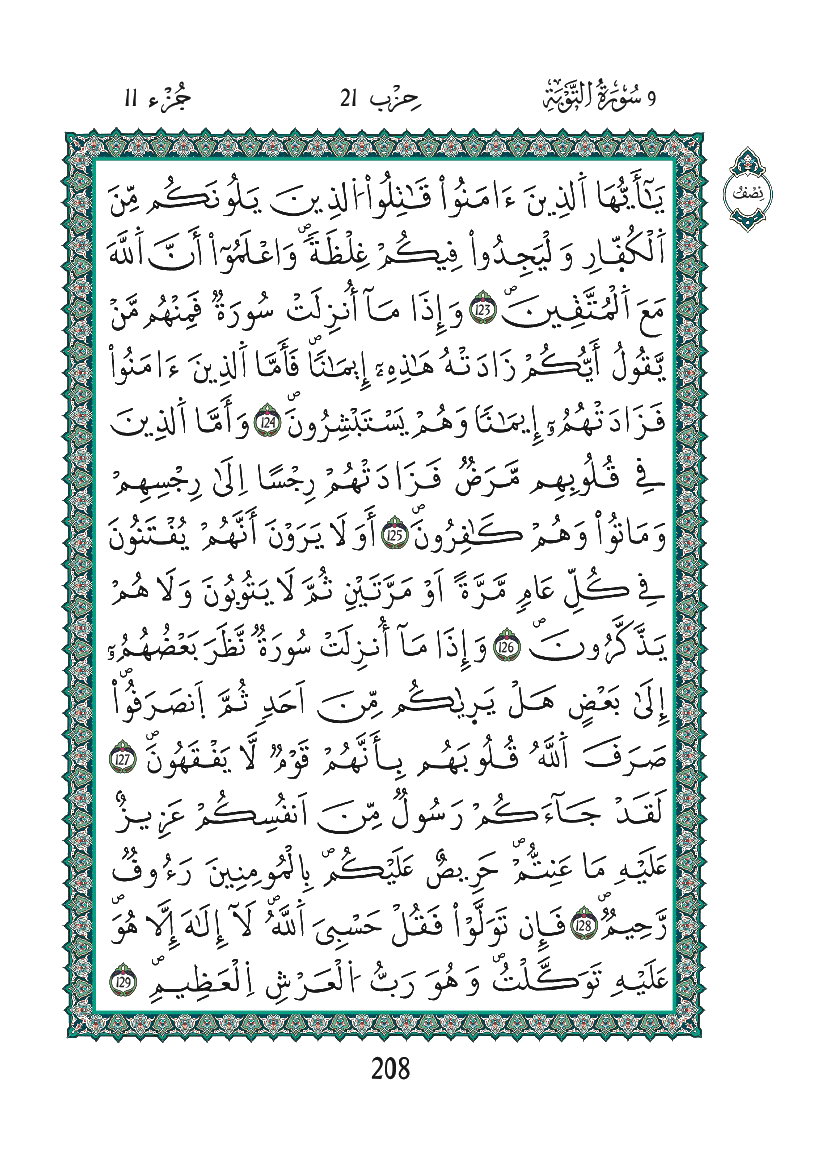 9 سُورَةُ التَّوْبَةِ حِزْب 21 جُزْء 11
نِصْفُ
يَٰٓأَيُّهَا اَ۬لذِينَ ءَامَنُواْ قَٰتِلُواْ اُ۬لذِينَ يَلُونَكُم مِّنَ
اَ۬لْكُفّ۪ارِ وَلْيَجِدُواْ فِيكُمْ غِلْظَةٗۖ وَاعْلَمُوٓاْ أَنَّ اَ۬للَّهَ
مَعَ اَ۬لْمُتَّقِينَۖ 123 وَإِذَا مَآ أُنزِلَتْ سُورَةٞ فَمِنْهُم مَّنْ
يَّقُولُ أَيُّكُمْ زَادَتْهُ هَٰذِهِۦٓ إِيمَٰناٗۖ فَأَمَّا اَ۬لذِينَ ءَامَنُواْ
فَزَادَتْهُمُۥٓ إِيمَٰناٗ وَهُمْ يَسْتَبْشِرُونَۖ 124 وَأَمَّا اَ۬لذِينَ
فِے قُلُوبِهِم مَّرَضٞ فَزَادَتْهُمْ رِجْساً اِلَىٰ رِجْسِهِمْ
وَمَاتُواْ وَهُمْ كَٰفِرُونَۖ 125 أَوَلَا يَرَوْنَ أَنَّهُمْ يُفْتَنُونَ
فِے كُلِّ عَامٖ مَّرَّةً اَوْ مَرَّتَيْنِ ثُمَّ لَا يَتُوبُونَ وَلَا هُمْ
يَذَّكَّرُونَۖ 126 وَإِذَا مَآ أُنزِلَتْ سُورَةٞ نَّظَرَ بَعْضُهُمُۥٓ
إِلَىٰ بَعْضٍ هَلْ يَر۪ىٰكُم مِّنَ اَحَدٖ ثُمَّ اَ۪نصَرَفُواْۖ
صَرَفَ اَ۬للَّهُ قُلُوبَهُم بِأَنَّهُمْ قَوْمٞ لَّا يَفْقَهُونَۖ 127
لَقَدْ جَآءَكُمْ رَسُولٞ مِّنَ اَنفُسِكُمْ عَزِيزٌ
عَلَيْهِ مَا عَنِتُّمْۖ حَرِيصٌ عَلَيْكُمۖ بِالْمُومِنِينَ رَءُوفٞ
رَّحِيمٞۖ 128 فَإِن تَوَلَّوْاْ فَقُلْ حَسْبِيَ اَ۬للَّهُۖ لَآ إِلَٰهَ إِلَّا هُوَۖ
عَلَيْهِ تَوَكَّلْتُۖ وَهُوَ رَبُّ اُ۬لْعَرْشِ اِ۬لْعَظِيمِۖ 129
208